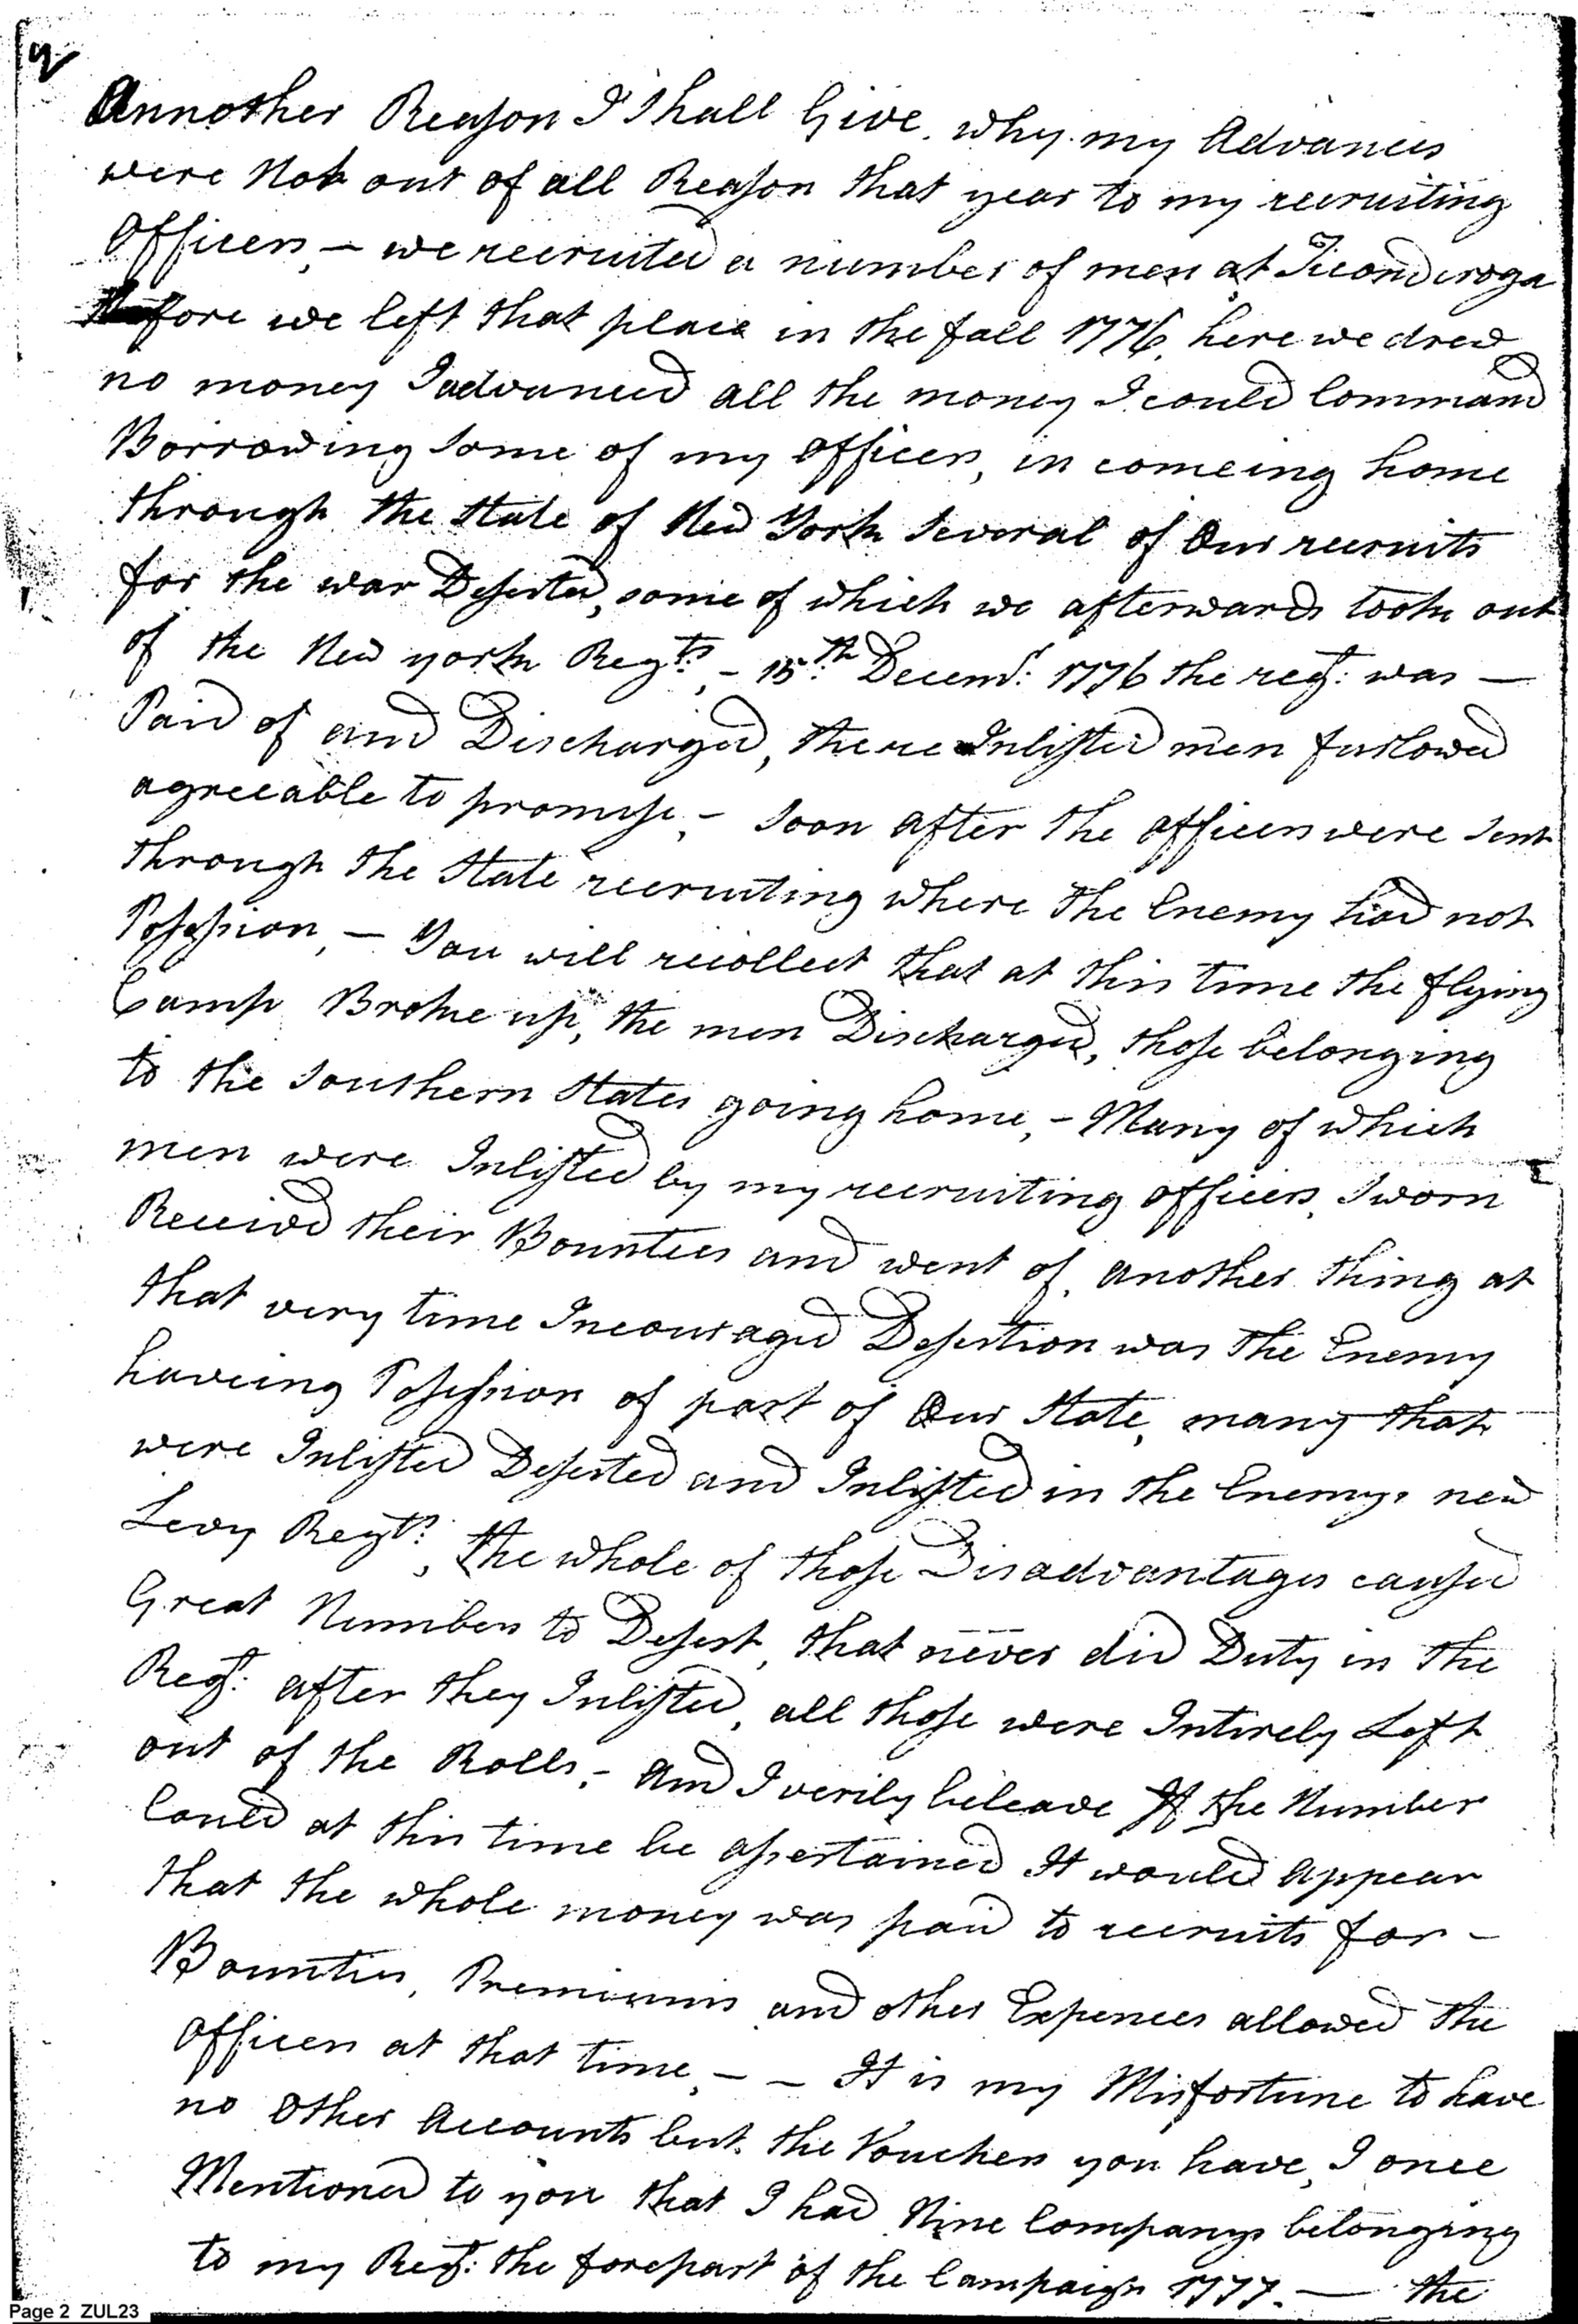 2
Annother Reason I Shall Give. why my Advances
were Not out of all Reason that year to my recruiting
Officers, – we recruited a number of men at Ticonderoga
Before we left that place in the fall 1776, here we drew
no money I advanced all the money I could Command
Borrowing Some of my officers, in comeing home
through the State of New York Several of Our recruits
for the war Deserted, some of which we afterwards took out
of the New york Regts, – 15th Decemr: 1776 the regt: was –
Paid of and Discharged, there Inlisted men furlowed
agreeable to promise, – Soon after the officers were Sent
through the State recruiting where the Enemy had not
Posession, – You will recollect that at this time the flying
Camp Broke up, the men Discharged, those belonging
to the Southern States going home, – Many of which
men were Inlisted by my recruiting officers, Sworn
Received their Bounties and went of, another thing at
that very time Incouraged Desertion was the Enemy
haveing Posession of part of Our State, many that
were Inlisted Deserted and Inlisted in the Enemys new
Levy Regts, the whole of those Disadvantages caused
Great Numbers to Desert, that never did Duty in the
Regt: after they Inlisted, all those were Intirely Left
out of the Rolls, – And I verily beleave If the Number
Could at this time be assertained It would appear
that the whole money was paid to recruits for –
Bounties, Premiums and other Expences allowed the
officers at that time, – – It is my Misfortune to have
no Other Accounts but the Vouchers you have, I once
Mentioned to you that I had Nine Companys belonging
to my Regt: the forepart of the Campaign 1777. — the
Page 2 ZUL23